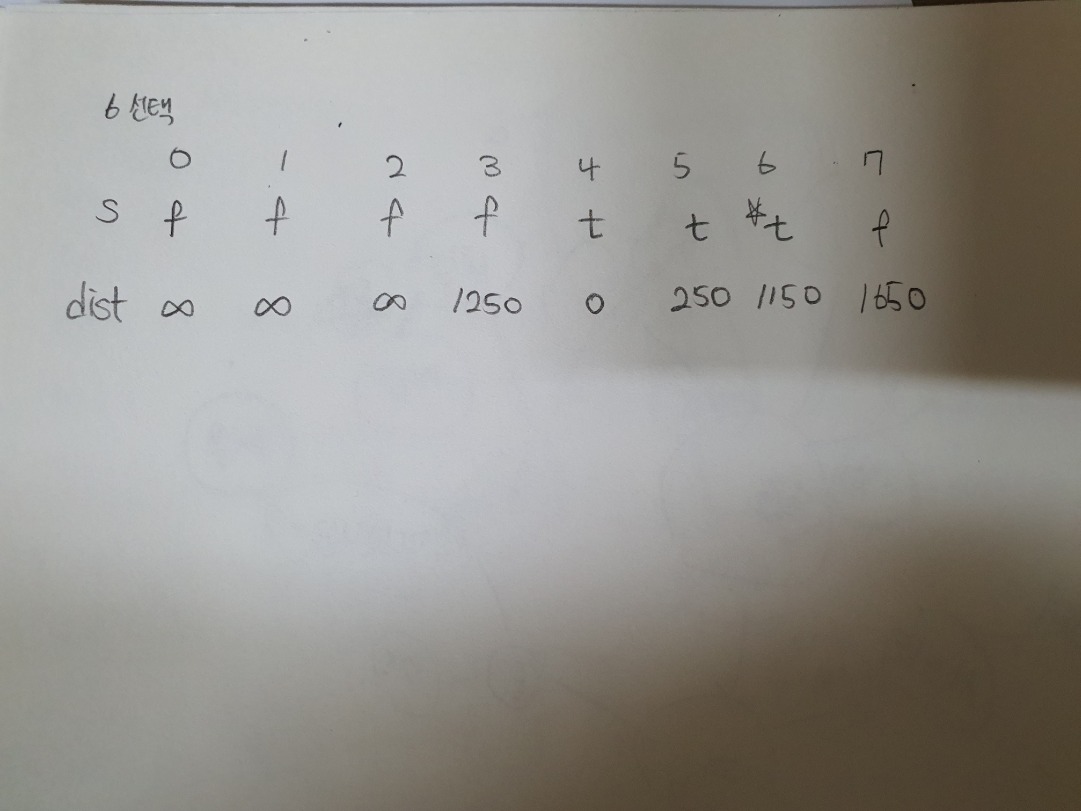 6 선택
0 1 2 3 4 5 6 7
S f f f f t t *t f
dist ∞ ∞ ∞ 1250 0 250 1150 1650